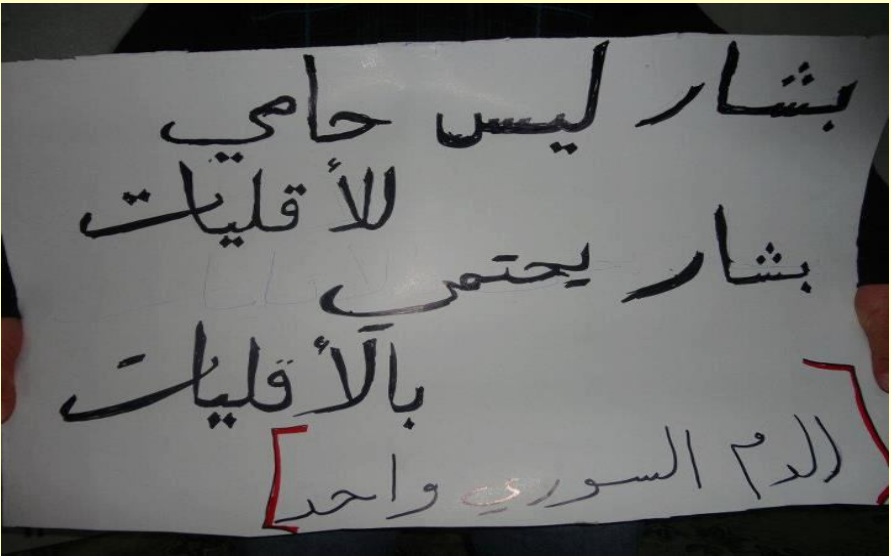 بشار ليس حامي
للأقليات
بشار يحتمي
بالأقليات
[الدم السوري واحد]